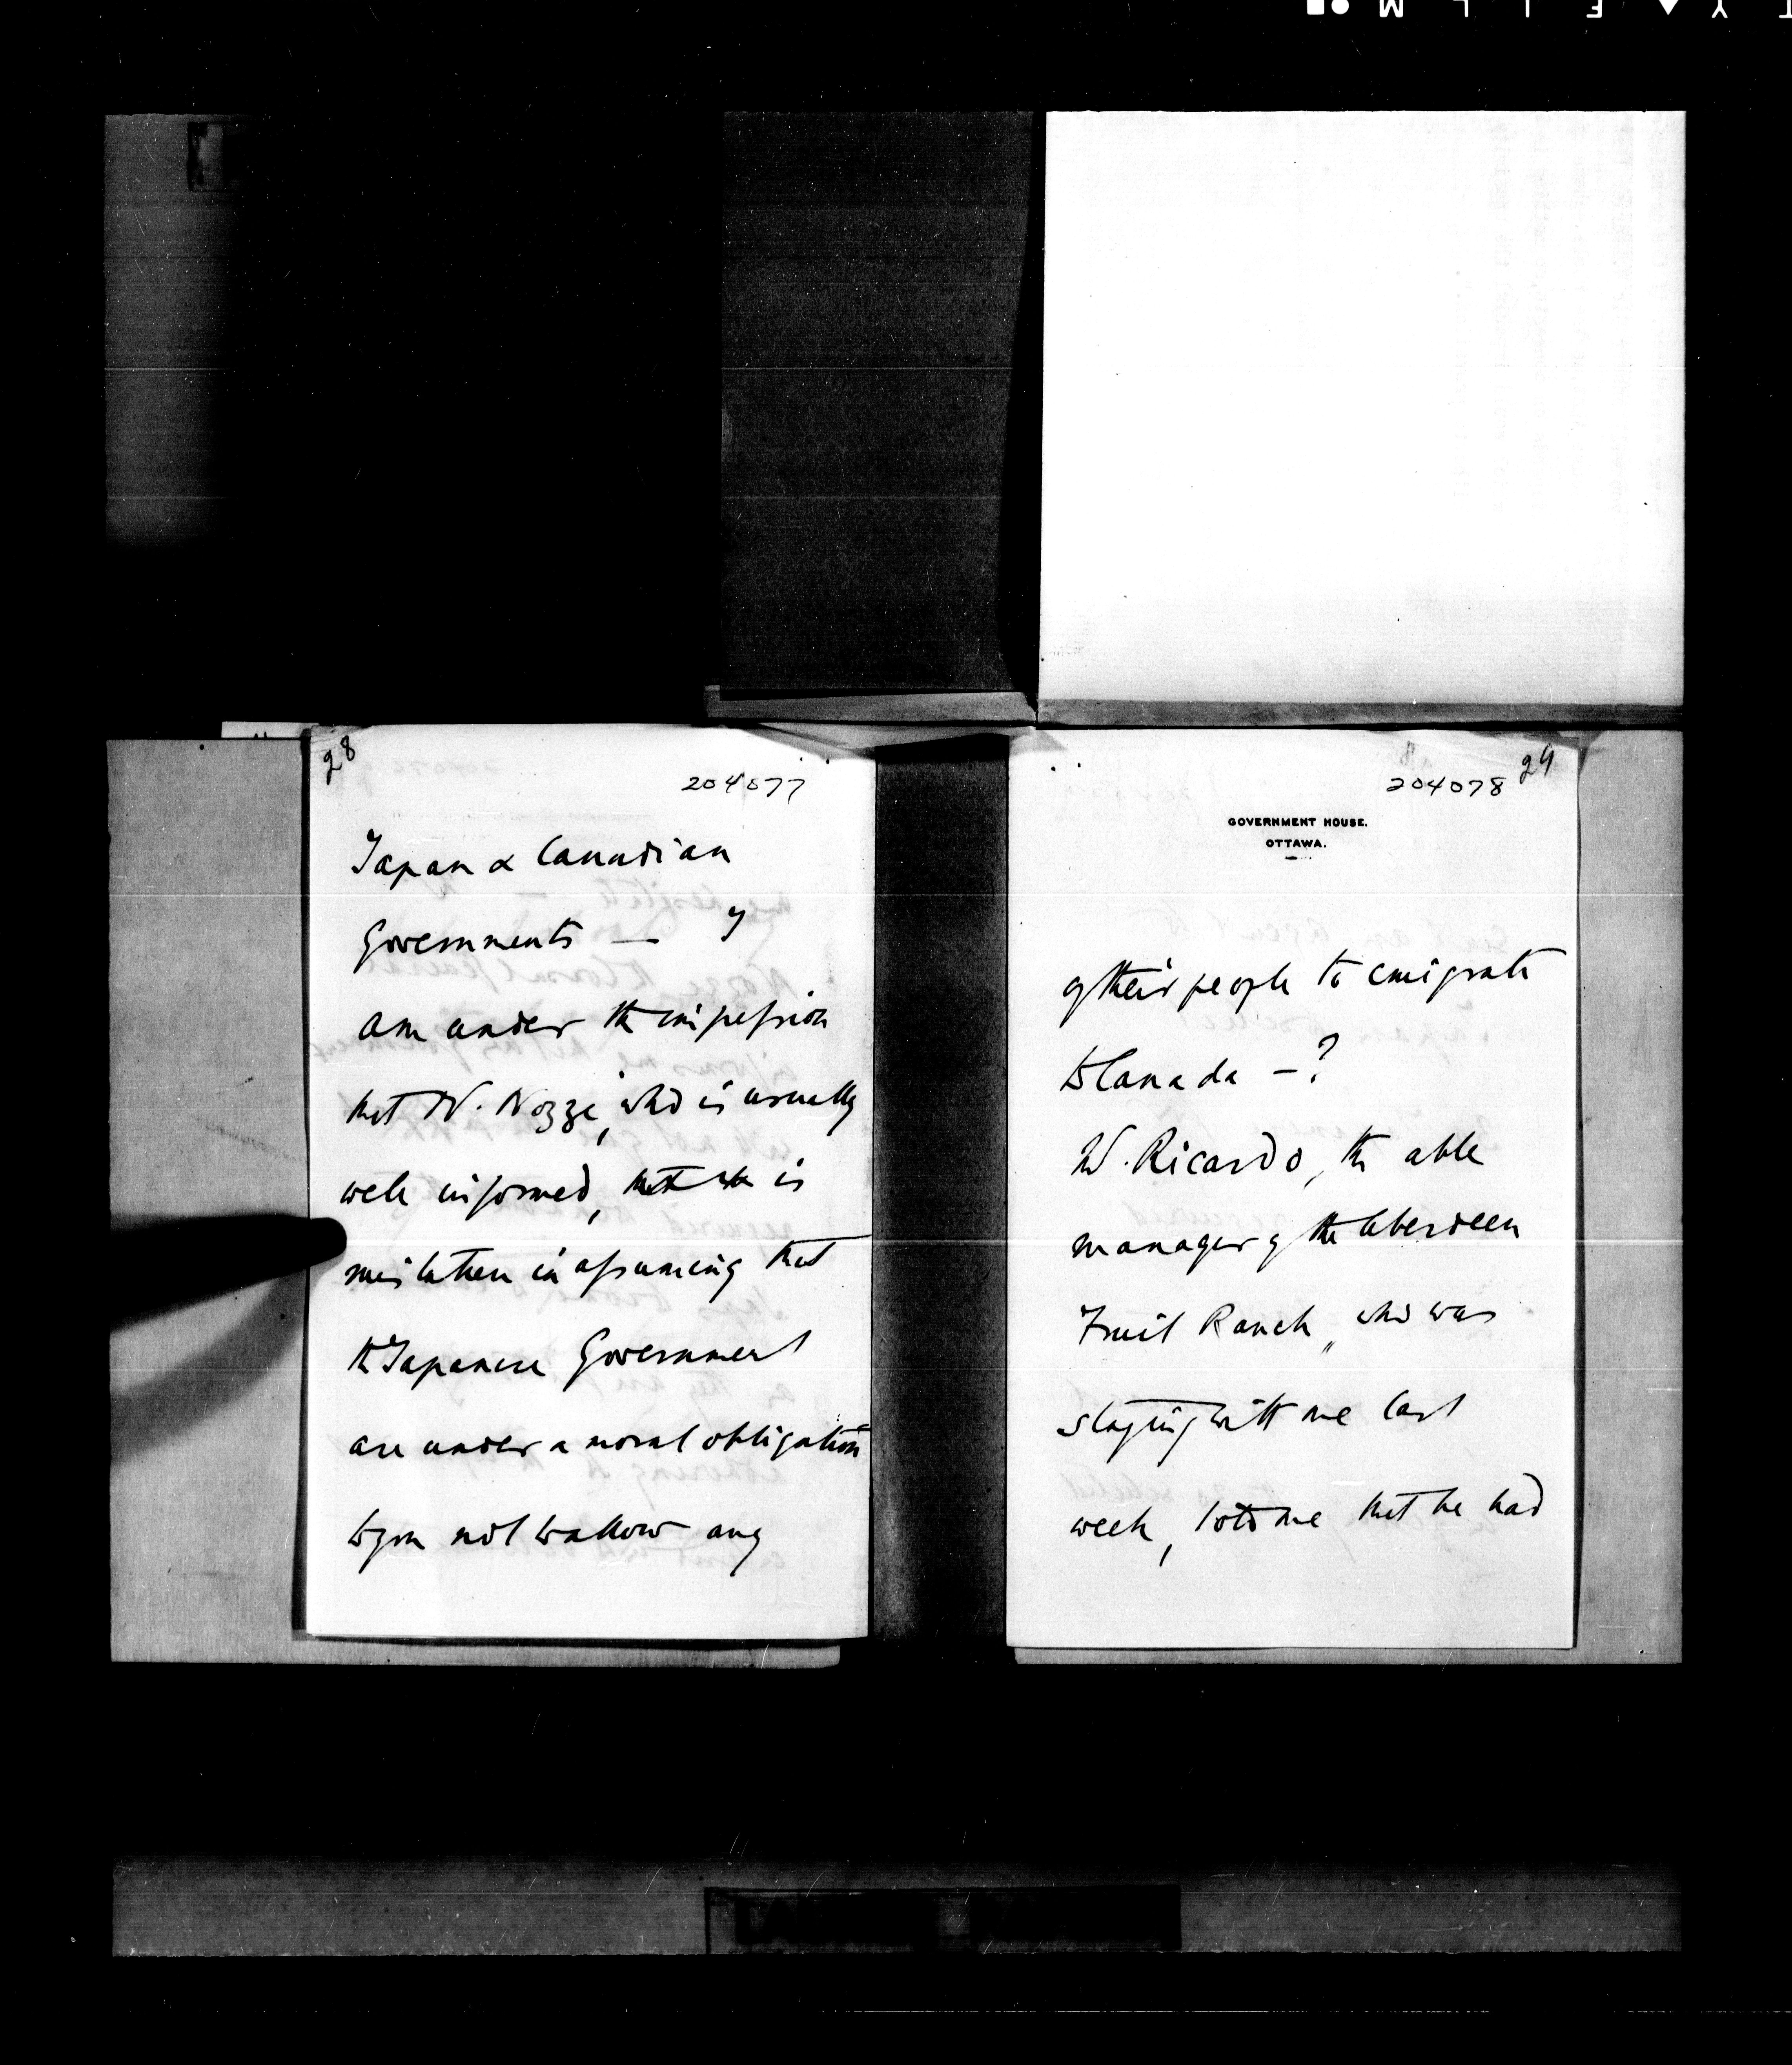 28
204077
Japan & Canadian
Governments — I
am under the impression
that Mr. Nozze, who is usually
well informed, is
mistaken in assuming that
the Japanese Government
are under a moral obligation
to you not to allow any
29
204078
GOVERNMENT HOUSE.
OTTAWA.
of their people to emigrate
to Canada — ?
Mr. Ricardo, the able
manager of the Aberdeen
Fruit Ranch, who was
staying with me last
week, told me that he had